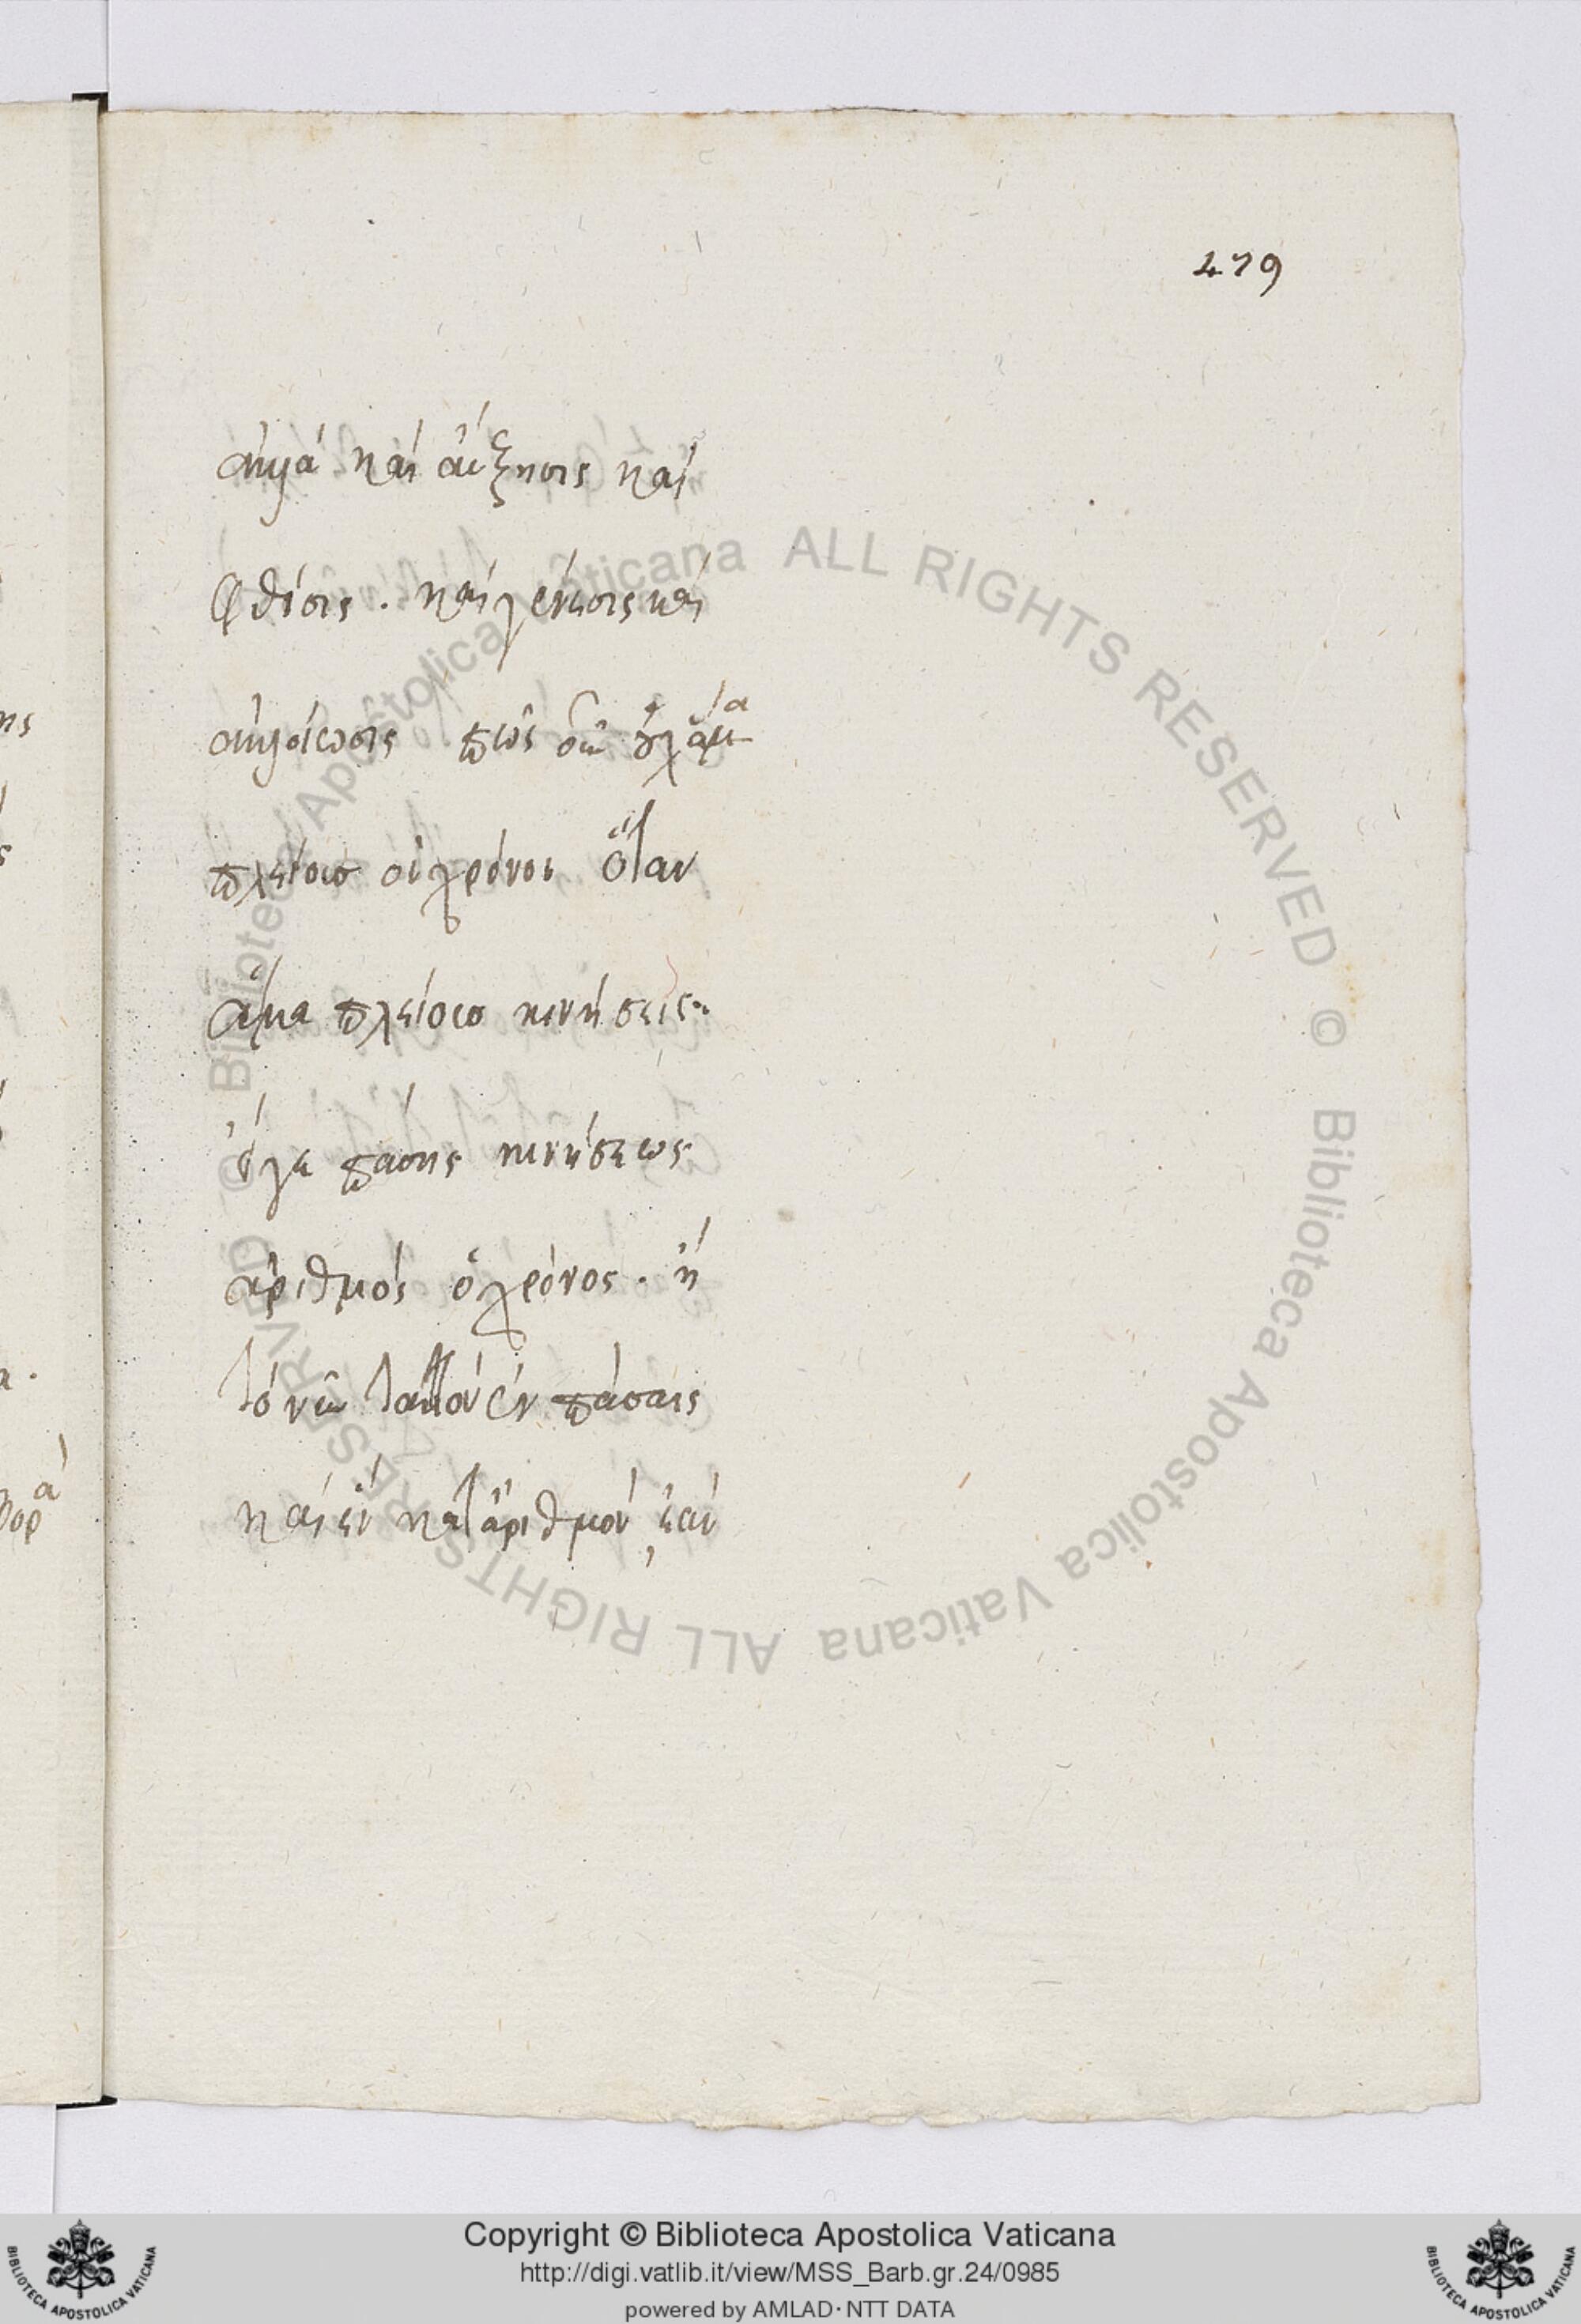 479
ἀλλὰ καὶ αὔξησις καὶ
φθίσις. καὶ γένεσις καὶ
ἀλλοίωσις πῶς οὖν οὐχ ἅμα
πλείους οἱ χρόνοι ὅταν
ἅμα πλείους κινήσεις.
ὅγε πάσης κινήσεως
ἀριθμός ὁ χρόνος. ἢ
τὸ νῦν ταυτὸν ἐν πάσαις
καὶ ἓν κατ' ἀριθμόν, ἐὰν
ης
ς
α.
φορὰ
© Biblioteca Apostolica Vaticana ALL RIGHTS RESERVED © Biblioteca Apostolica Vaticana ALL RIGHTS RESERVED
Copyright © Biblioteca Apostolica Vaticana
http://digi.vatlib.it/view/MSS_Barb.gr.24/0985
powered by AMLAD·NTT DATA
BIBLIOTECA APOSTOLICA VATICANA
BIBLIOTECA APOSTOLICA VATICANA